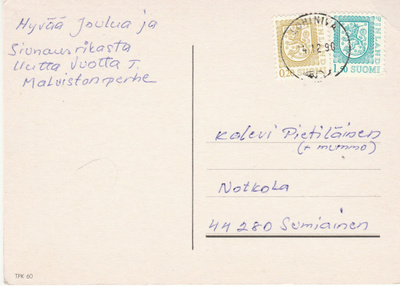 Hyvää Joulua ja
Siunausrikasta
Uutta Vuotta T.
Malvistonperhe
TPK-60
0,20 SUOMI
FINLAND
SUOMI
12.90
Kalevi Pietiläinen
(+ mummo)
Notkola
44280 Sumiainen